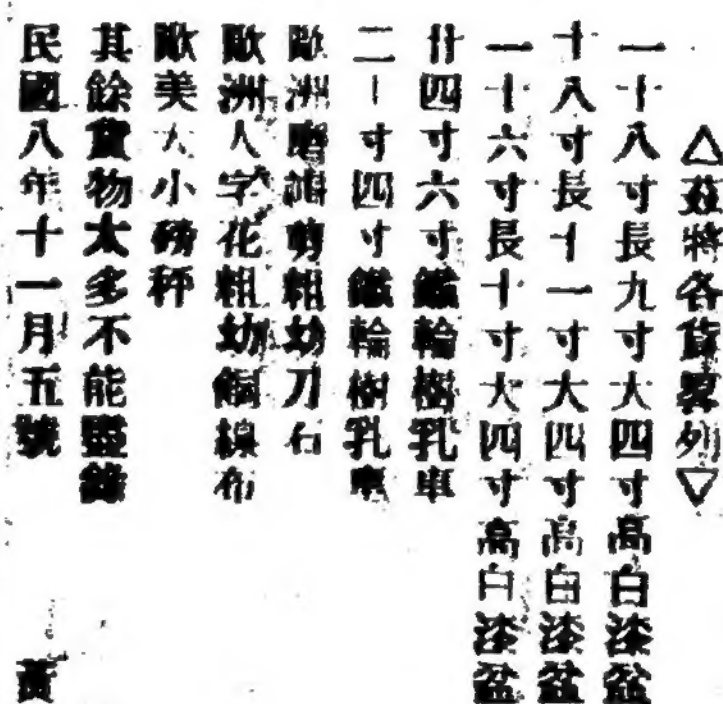 △茲將各貨畧列▽
一十八寸長九寸大四寸高白漆盆
十八寸長十一寸大四寸高白漆盆
一十六寸長十寸大四寸高白漆盆
廿四寸六寸鐵輪樹乳車
二十寸四寸鐵輪樹乳車
歐洲磨剪粗幼刀石
歐洲人字花粗幼銅線布
歐美大小磅秤
其餘貨物太多不能盡錄
民國八年十一月五號
黃